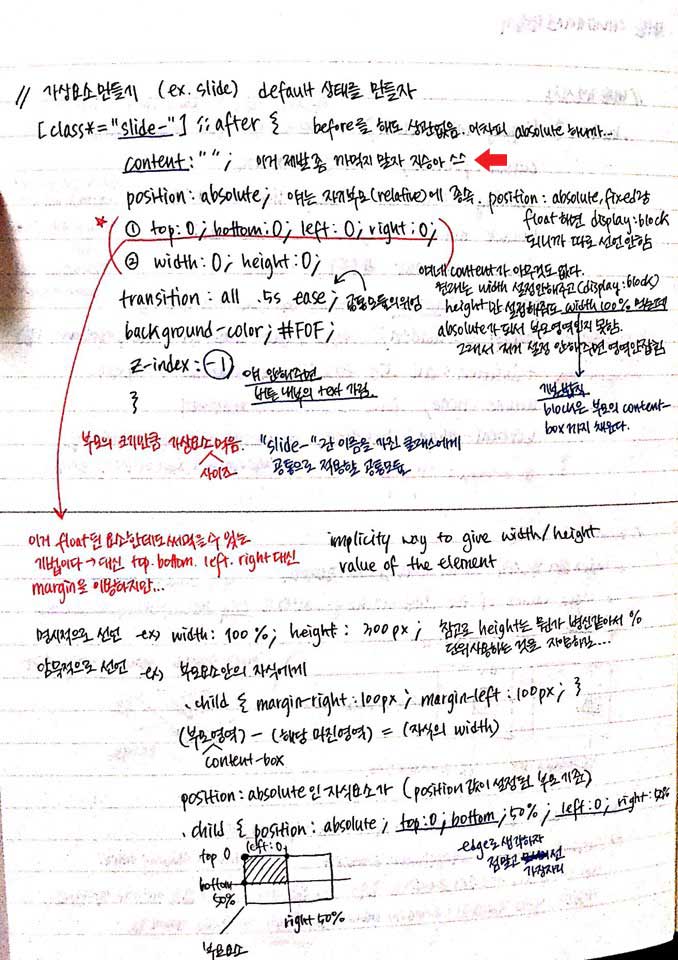 // 가상요소만들기 (ex. slide) default 상태를 만들자
[class*="slide-"] ;: after { before를 해도 상관없음. 어차피 absolute 하니까...
content: " "; 이거 제발 좀 까먹지 말자 지승아 ^^
position: absolute; 얘는 자기부모(relative)에 종속. position: absolute, fixed랑
float 하면 display: block
되니까 따로 선언 안함
① top: 0; bottom: 0; left: 0; right: 0;
② width: 0; height: 0;
여기에 content가 아무것도 없다.
원래는 width 설정안해주고 (display: block)
height만 설정해줘도 width 100% 먹는데
absolute가 되서 부모영역인지 못함.
그래서 저거 설정 안해주면 영역안잡힘
transition: all .5s ease; 공통모듈의 위엄
background-color; #F0F;
z-index: -1 얘 안해주면
버튼 내부의 text 가림.
}
기본 법칙
block은 부모의 content-
box 까지 채운다.
부모의 크기만큼 가상요소 먹음.
사이즈
"slide-"란 이름을 가진 클래스에게
공통으로 적용할 공통모듈
이거 float된 요소한테도 써먹을 수 있는
기법이다 → 대신 top. bottom. left. right 대신
margin을 이용하지만...
implicity way to give width/height
value of the element
명시적으로 선언 ex) width: 100%; height: 300px; 참고로 height는 뭔가 병신같아서 %
단위사용하는 것을 지양하라...
암묵적으로 선언 ex) 부모요소안의 자식에게
.child { margin-right: 100px; margin-left: 100px; }
(부모영역) - (해당 마진영역) = (자식의 width)
content-box
position: absolute인 자식요소가 (position 값이 설정된 부모 기준)
.child { position: absolute; top: 0; bottom; 50%; left: 0; right: 50%
edge로 생각하자
점말고 선
가장자리
top 0 left: 0
bottom
50%
right 50%
부모요소